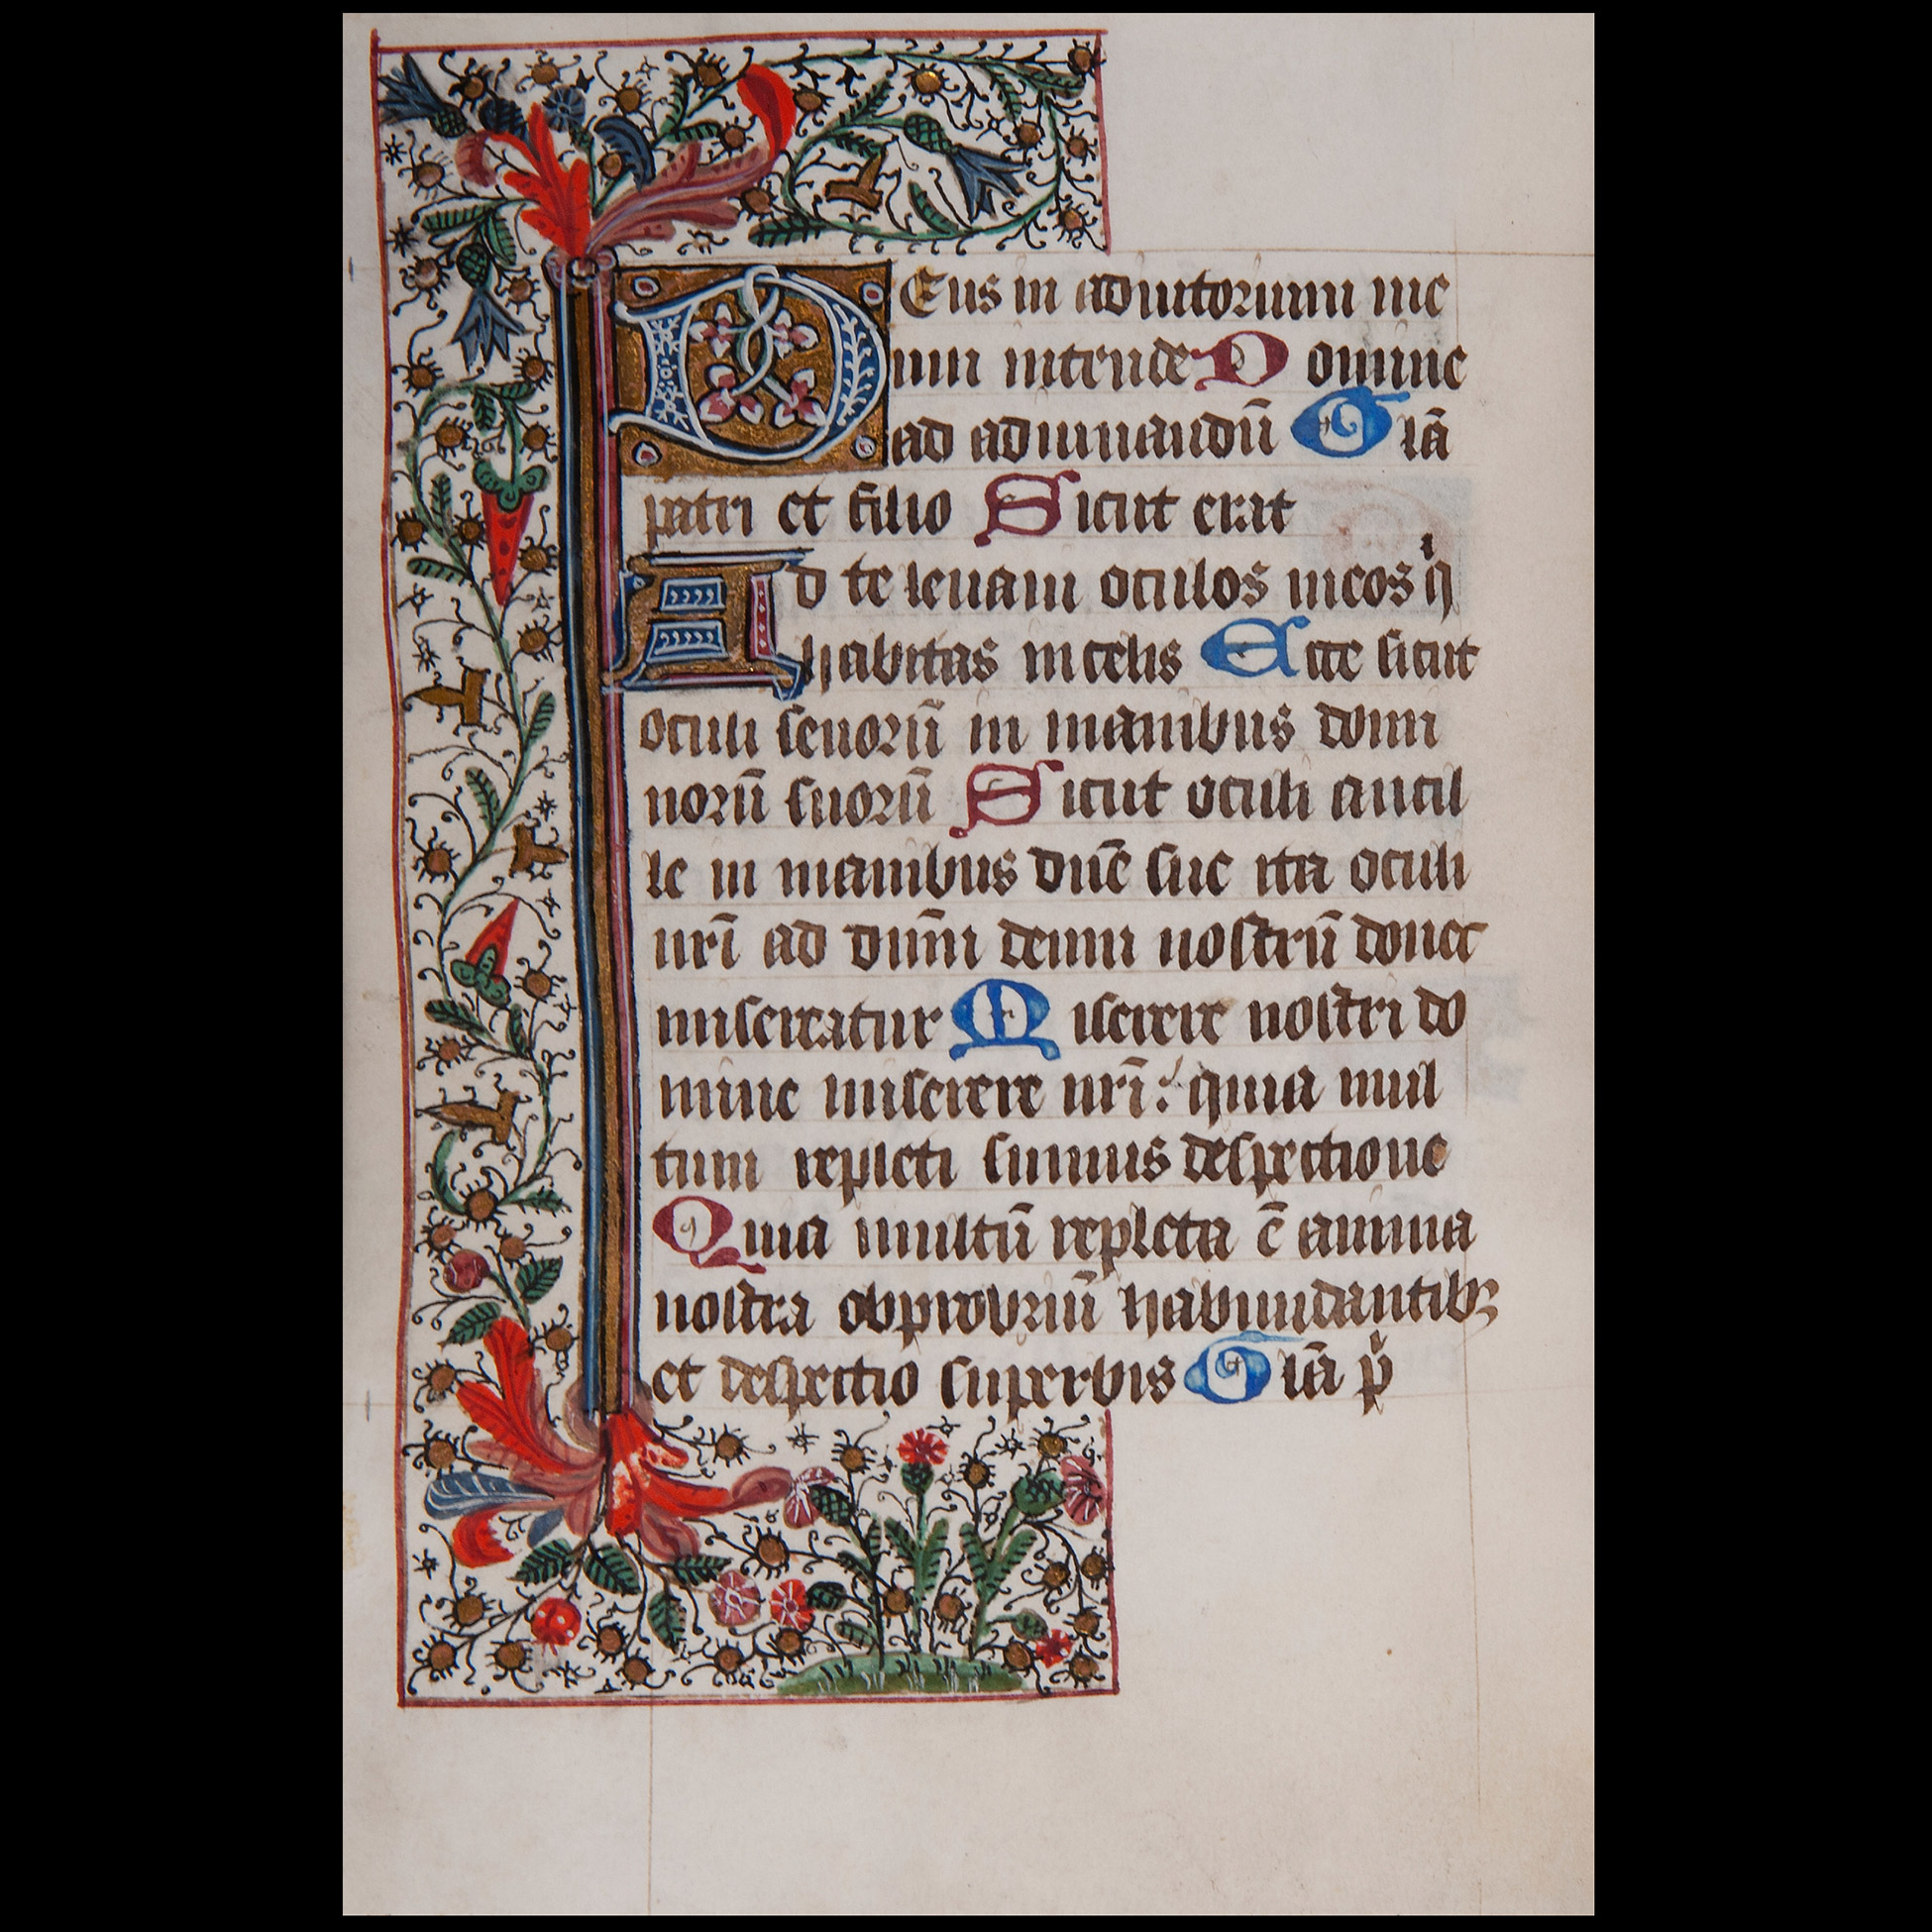 DEus in adiutorium me
um intende Domine
ad adiuuandū Glā
patri et filio Sicut erat
Ad te leuaui oculos meos qͥ
habitas in celis Ecce sicut
oculi seuorū in manibus domi
norū suorū Sicut oculi ancil
le in manibus dn̄e sue ita oculi
nrī ad dnm̄ deum nostrū donec
misereatur Miserere nostri do
mine miserere nrī : quia mul
tum repleti sumus despectione
Quia multū repleta ē anima
nostra obprobriū habundantibꝫ
et despectio superbis Glā pͥ